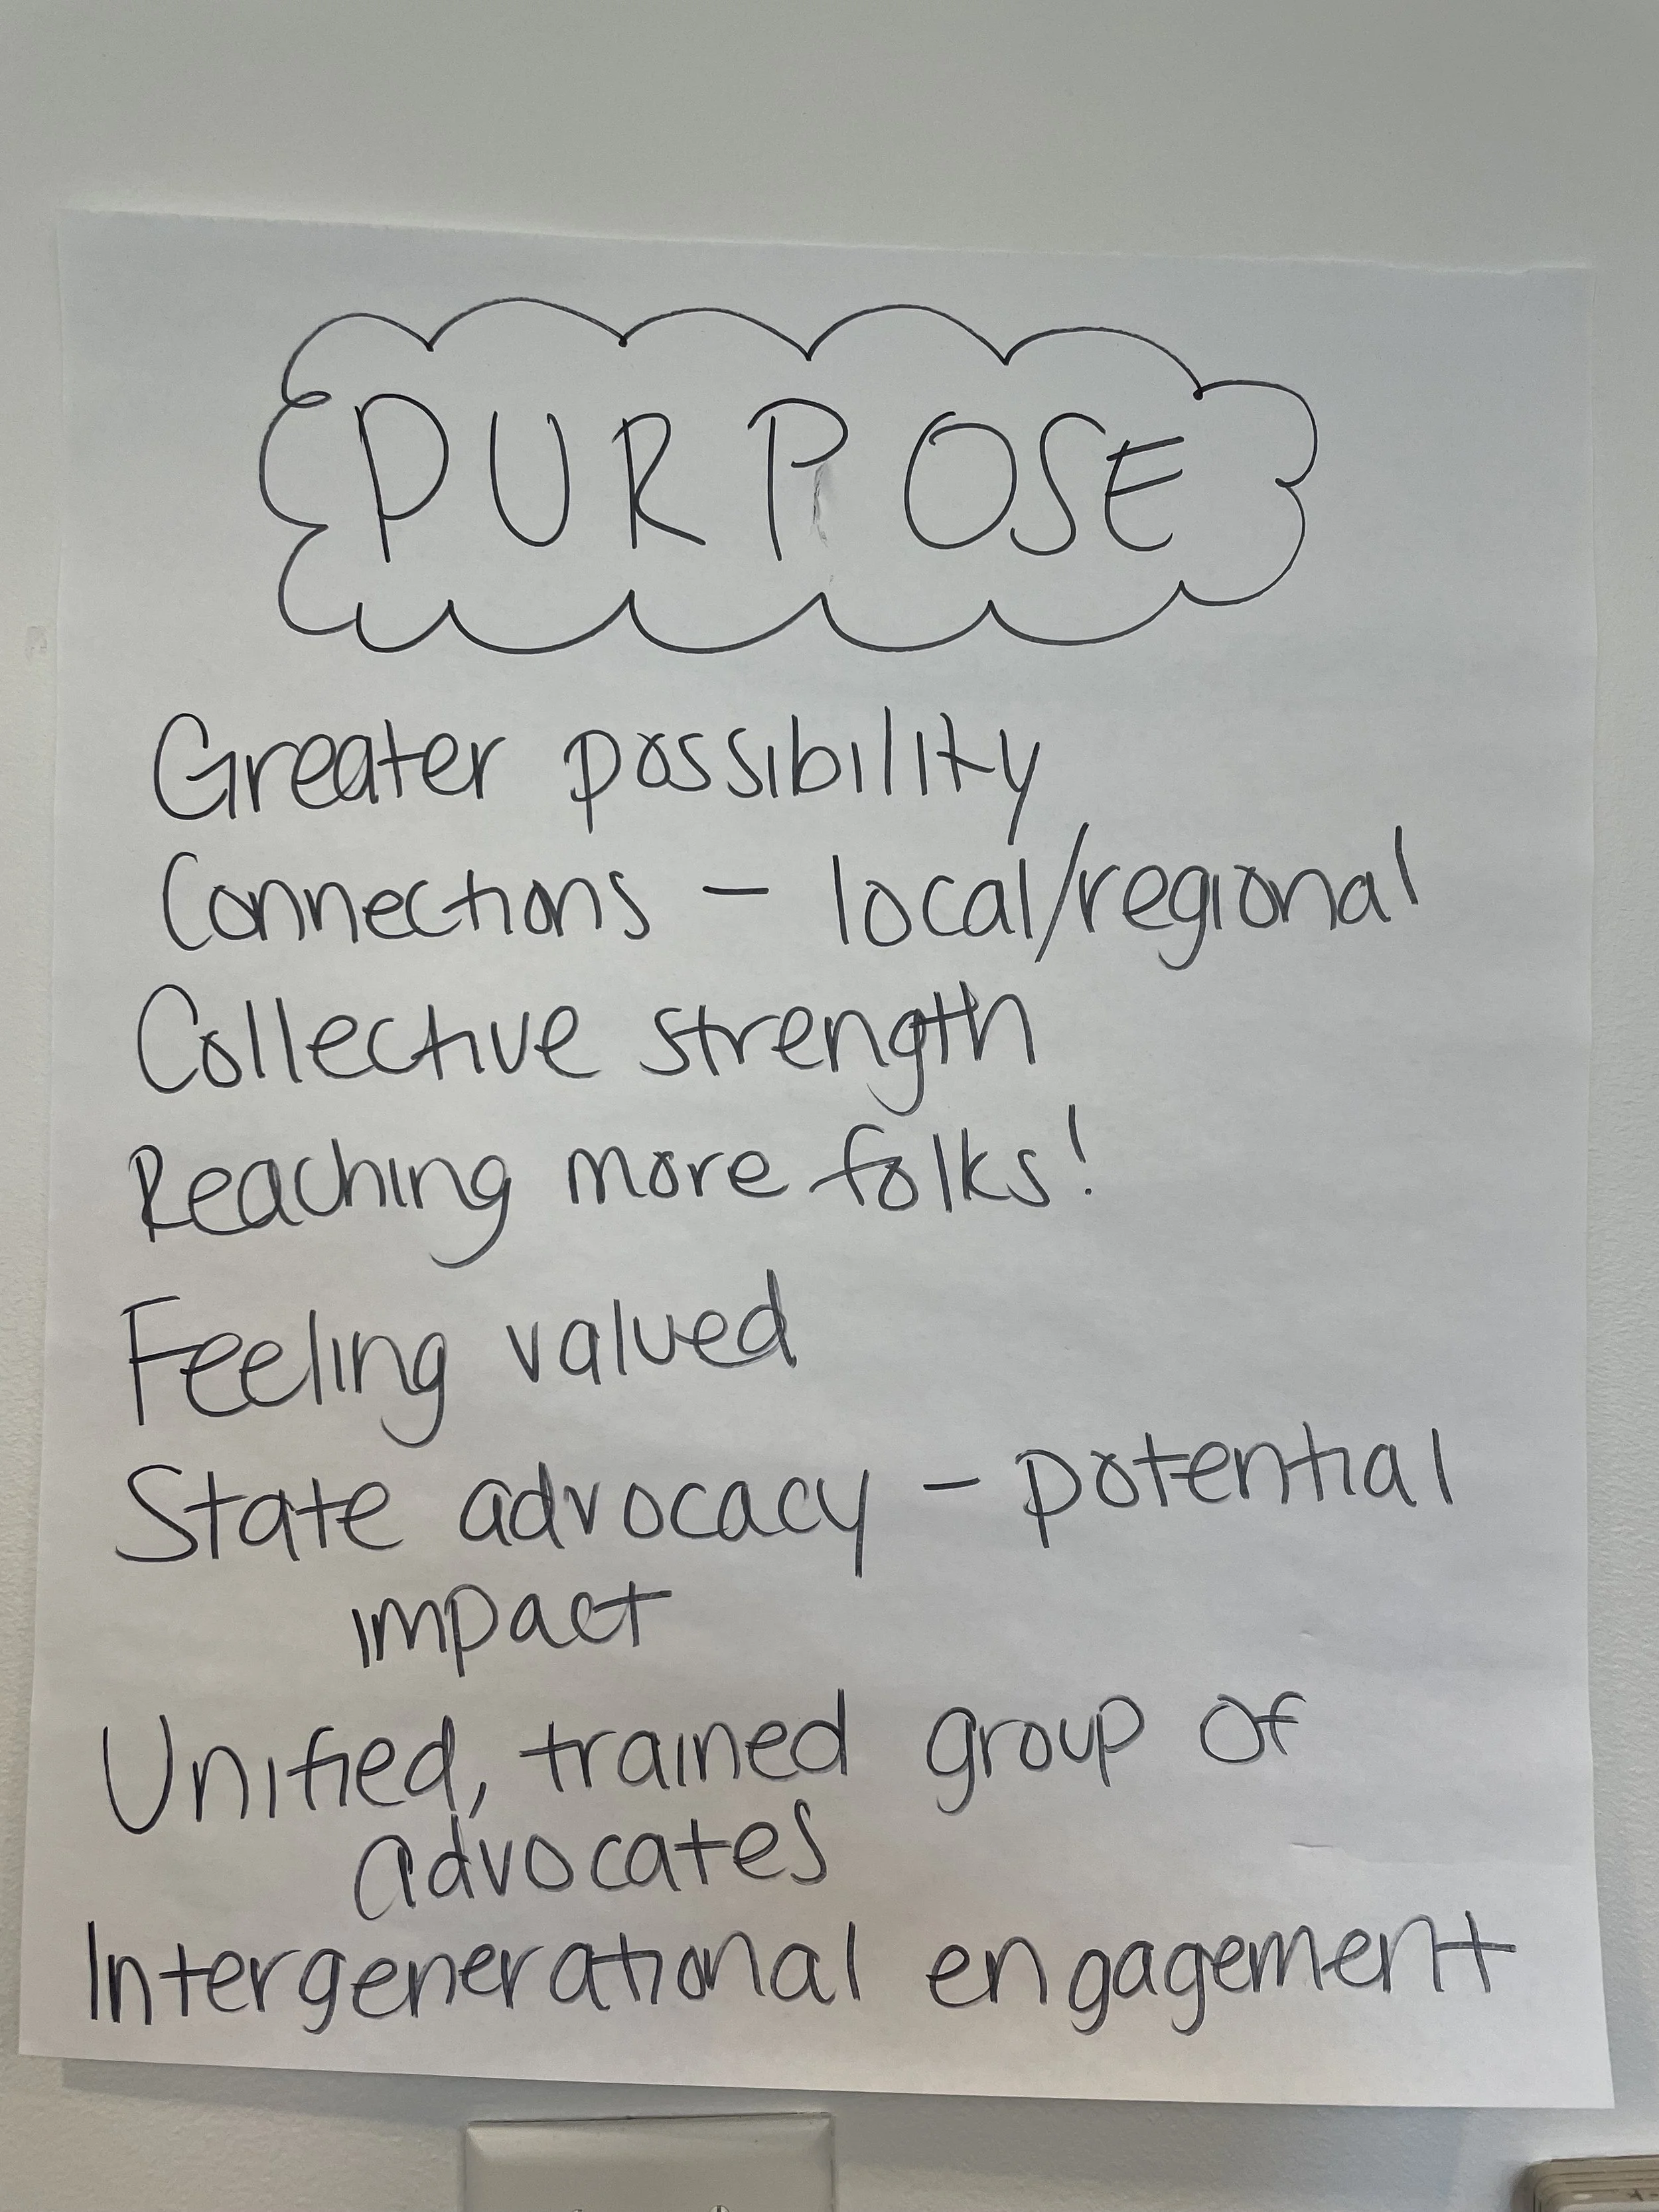 PURPOSE
Greater possibility
Connections – local/regional
Collective strength
Reaching more folks!
Feeling valued
State advocacy – potential
impact
Unified, trained group of
advocates
Intergenerational engagement